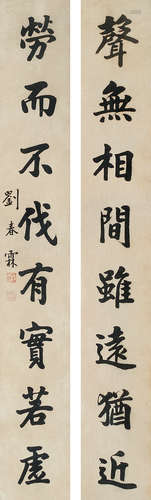 聲無相間雖遠猶近
勞而不伐有實若虛
劉春霖